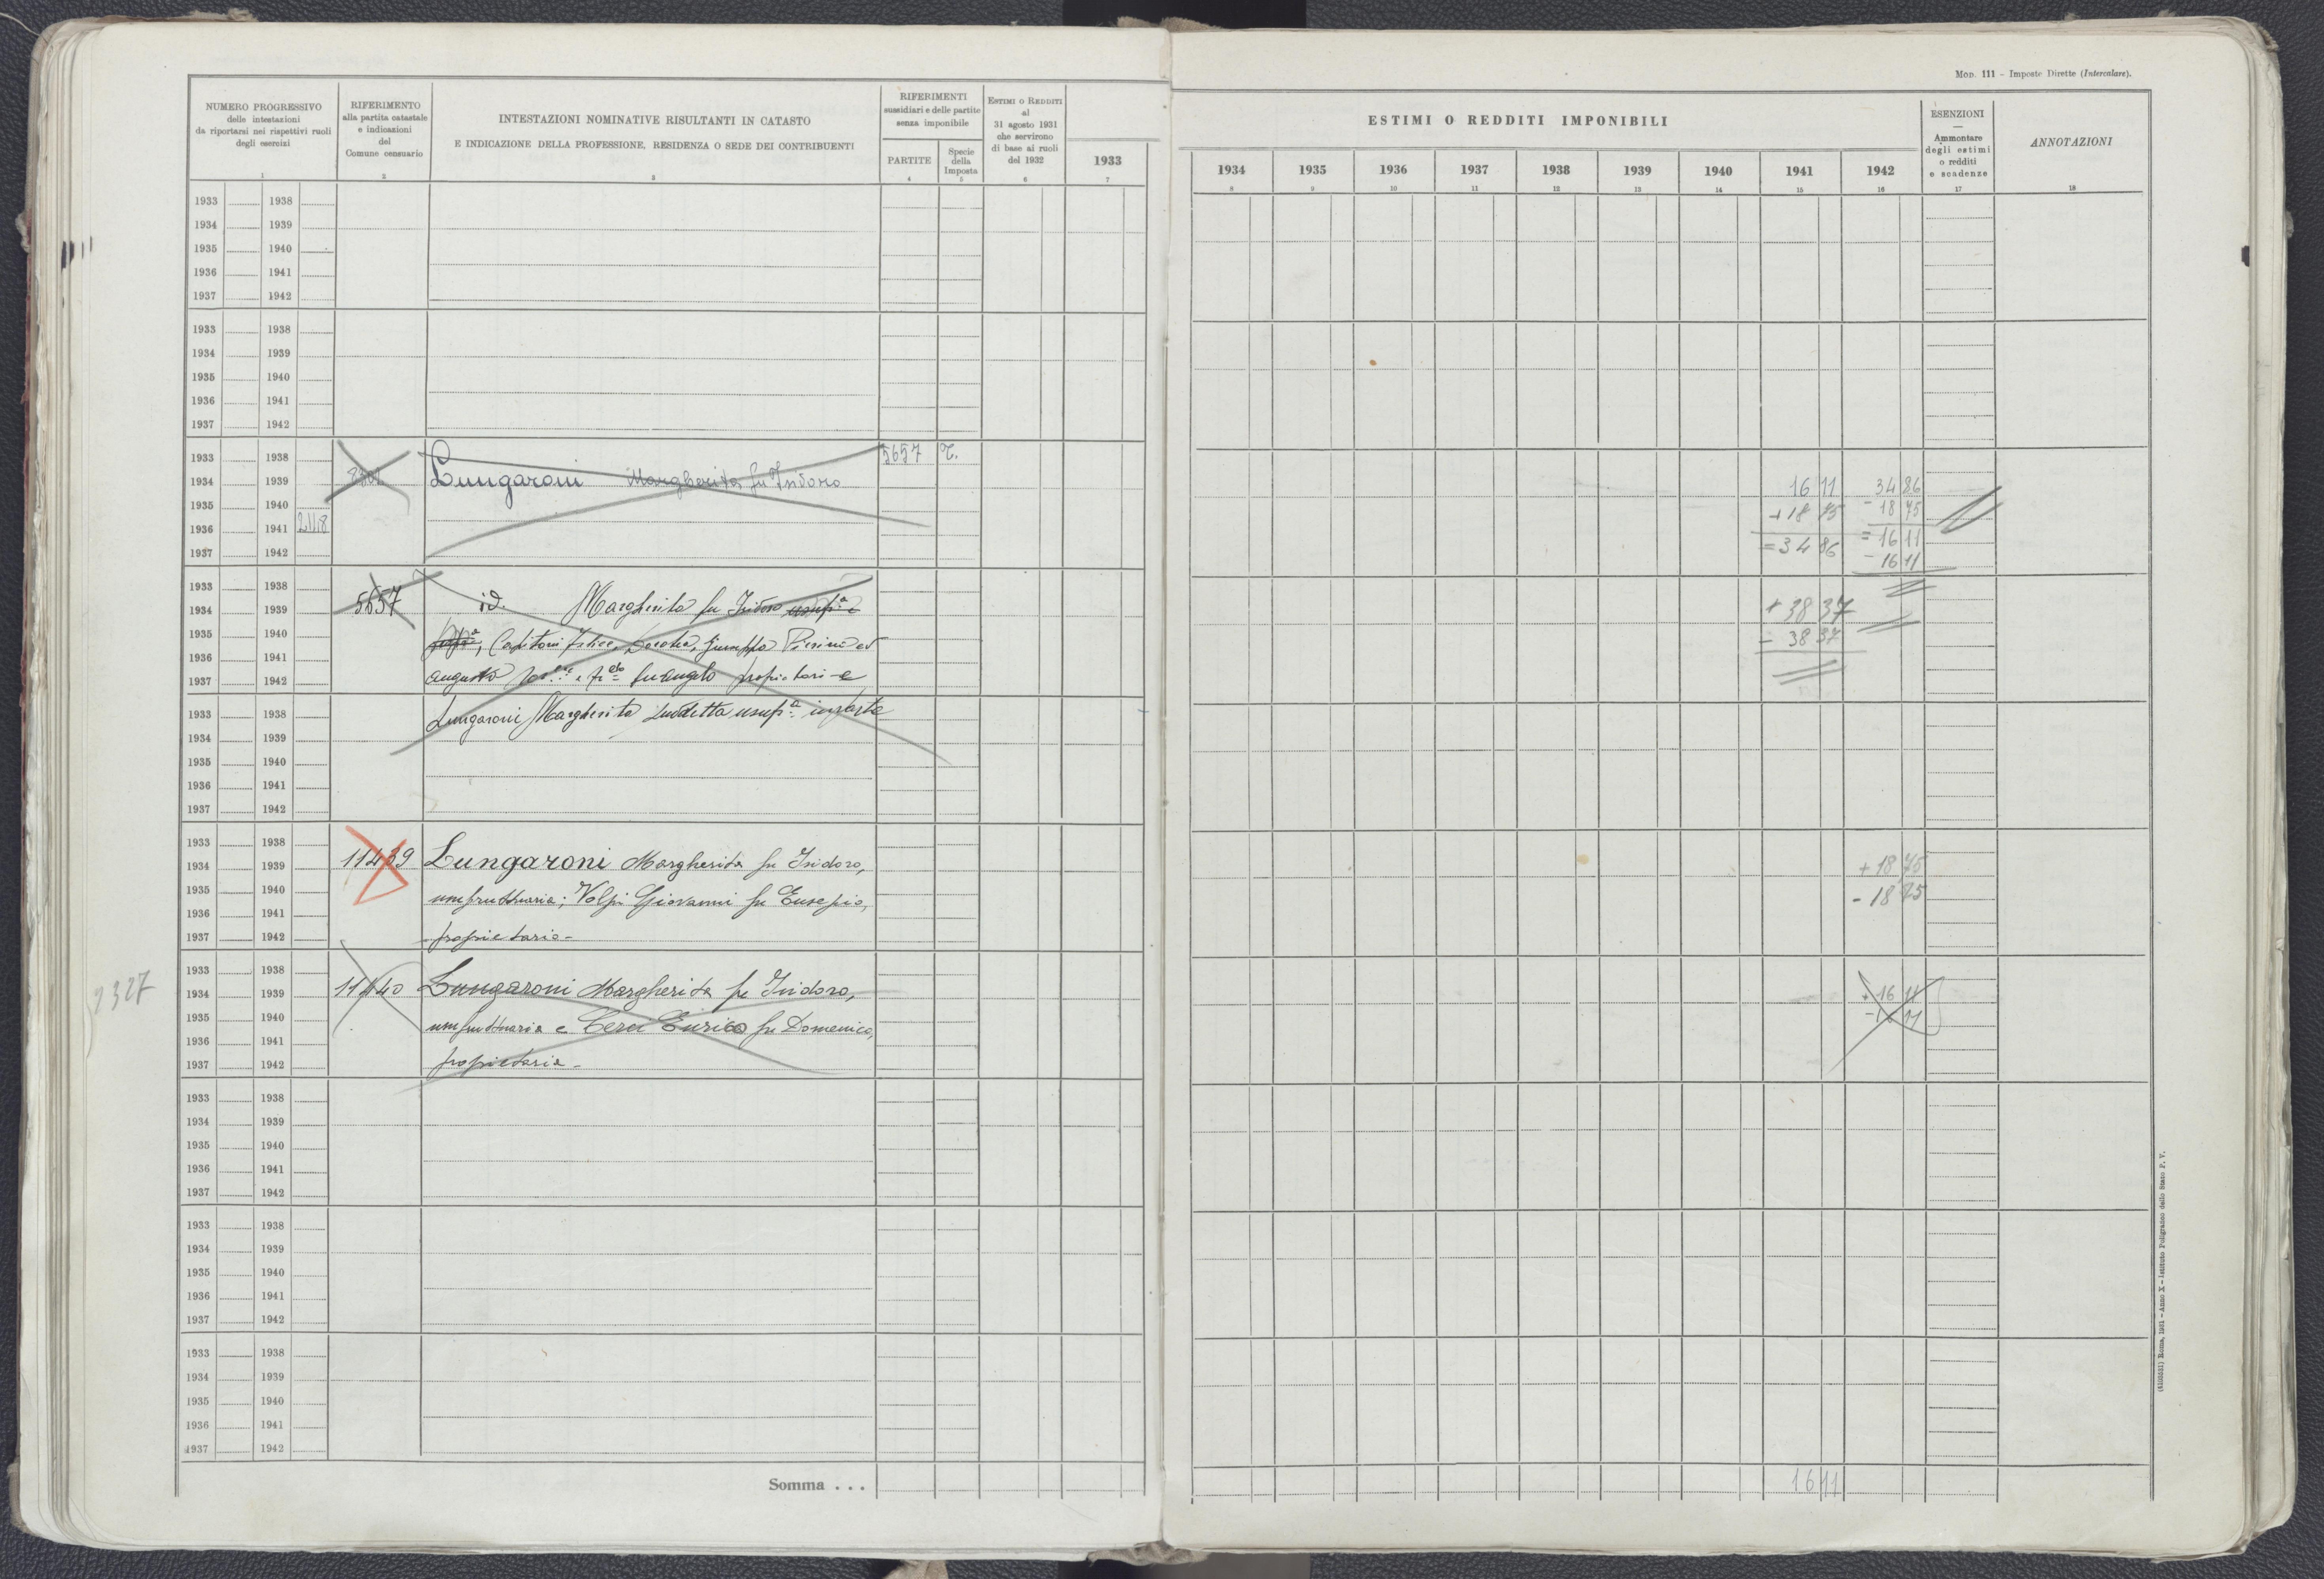 Mod. 111 - Imposte Dirette (Intercalare).
NUMERO PROGRESSIVO
delle intestazioni
da riportarsi nei rispettivi ruoli
degli esercizi
1
RIFERIMENTO
alla partita catastale
e indicazioni
del
Comune censuario
2
INTESTAZIONI NOMINATIVE RISULTANTI IN CATASTO
E INDICAZIONE DELLA PROFESSIONE, RESIDENZA O SEDE DEI CONTRIBUENTI
3
RIFERIMENTI
sussidiari e delle partite
senza imponibile
PARTITE
4
Specie
della
Imposta
5
Estimi o Redditi
al
31 agosto 1931
che servirono
di base ai ruoli
del 1932
6
1933
7
ESTIMI O REDDITI IMPONIBILI
1934 1935 1936 1937 1938 1939 1940 1941 1942
8 9 10 11 12 13 14 15 16
ESENZIONI
—
Ammontare
degli estimi
o redditi
e scadenze
17
ANNOTAZIONI
18
1933 1938
1934 1939
1935 1940
1936 1941
1937 1942
1933 1938
1934 1939
1935 1940
1936 1941
1937 1942
1933 1938 5657 T.
1934 1939 Lungaroni Margherita fu Isidoro 16 11 34 86
1935 1940 +18 75 - 18 75
1936 1941 =34 86 = 16 11
1937 1942 - 16 11
1933 1938
1934 1939 5657 id. Margherita fu Isidoro usufª e + 38 37
1935 1940 Capitoni Felice, Giuseppa Pierina ed - 38 37
1936 1941
1937 1942 Augusto fu Angelo proprietari e
1933 1938 Lungaroni Margherita suddetta usufª in parte
1934 1939
1935 1940
1936 1941
1937 1942
1933 1938
1934 1939 11439 Lungaroni Margherita fu Isidoro, + 18 75
1935 1940 usufruttuaria; Volpi Giovanni fu Eusepio, - 18 75
1936 1941
1937 1942 proprietario -
1933 1938
2327
1934 1939 11440 Lungaroni Margherita fu Isidoro, + 16 11
1935 1940 usufruttuaria e Cerci Enrica fu Domenico, - 16 11
1936 1941
1937 1942 proprietaria -
1933 1938
1934 1939
1935 1940
1936 1941
1937 1942
1933 1938
1934 1939
1935 1940
1936 1941
1937 1942
1933 1938
1934 1939
1935 1940
1936 1941
1937 1942
Somma . . . 16 11
(4100331) Roma, 1931 - Anno X - Istituto Poligrafico dello Stato P. V.